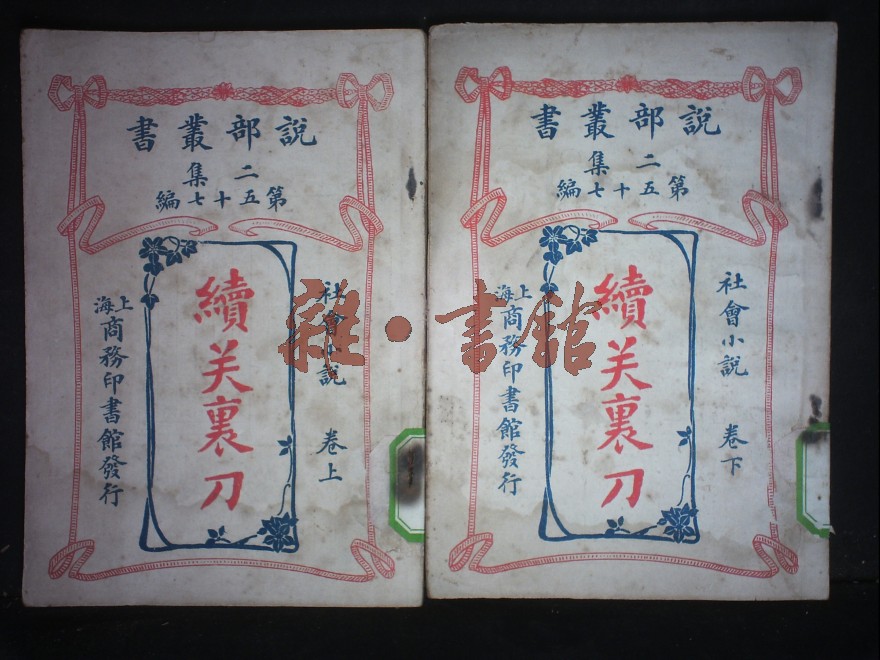 說部叢書
二集
第五十七編
社會小說 卷上
續关裏刀
上海商務印書館發行
說部叢書
二集
第五十七編
社會小說 卷下
續关裏刀
上海商務印書館發行
雜·書館